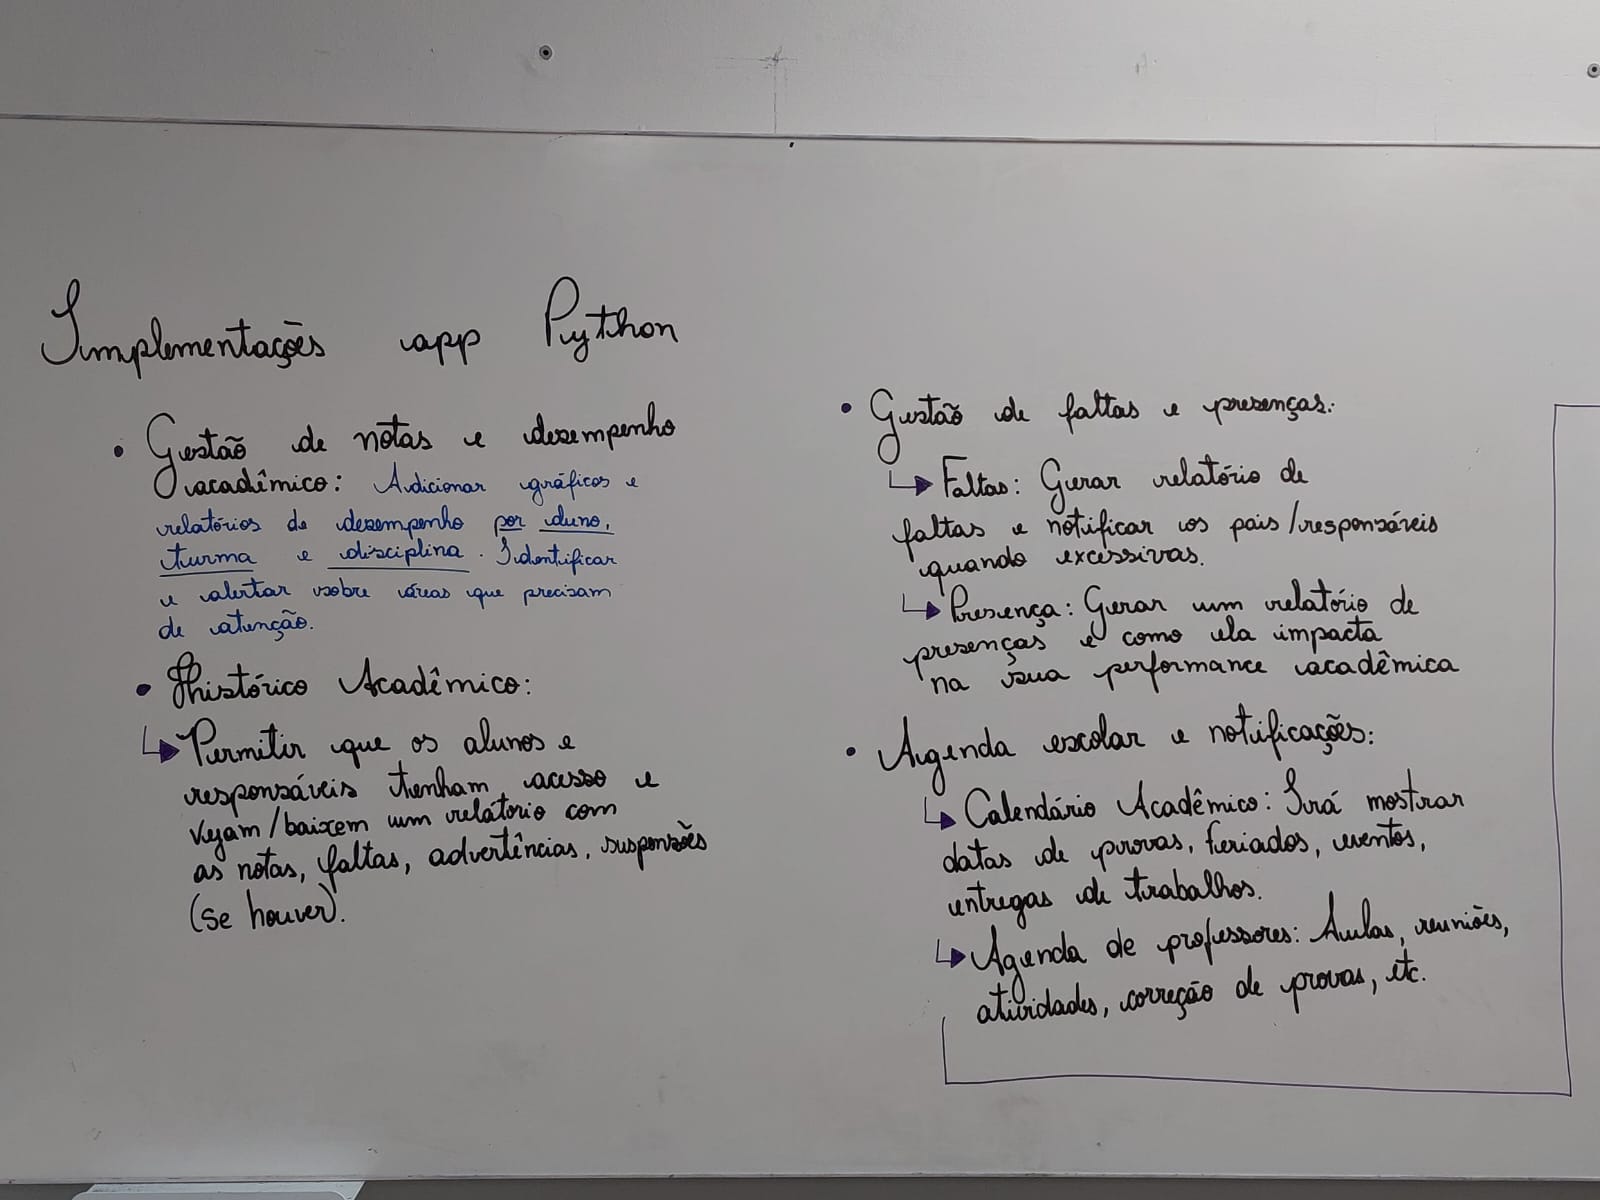 Implementações app Python
• Gestão de notas e desempenho
acadêmico: Adicionar gráficos e
relatórios de desempenho por aluno,
turma e disciplina. Identificar
e alertar sobre áreas que precisam
de atenção.
• Histórico Acadêmico:
↳ Permitir que os alunos e
responsáveis tenham acesso e
vejam/baixem um relatório com
as notas, faltas, advertências, suspensões
(se houver).
• Gestão de faltas e presenças:
↳ Faltas: Gerar relatório de
faltas e notificar os pais/responsáveis
quando excessivas.
↳ Presença: Gerar um relatório de
presenças e como ela impacta
na sua performance acadêmica
• Agenda escolar e notificações:
↳ Calendário Acadêmico: Irá mostrar
datas de provas, feriados, eventos,
entregas de trabalhos.
↳ Agenda de professores: Aulas, reuniões,
atividades, correção de provas, etc.